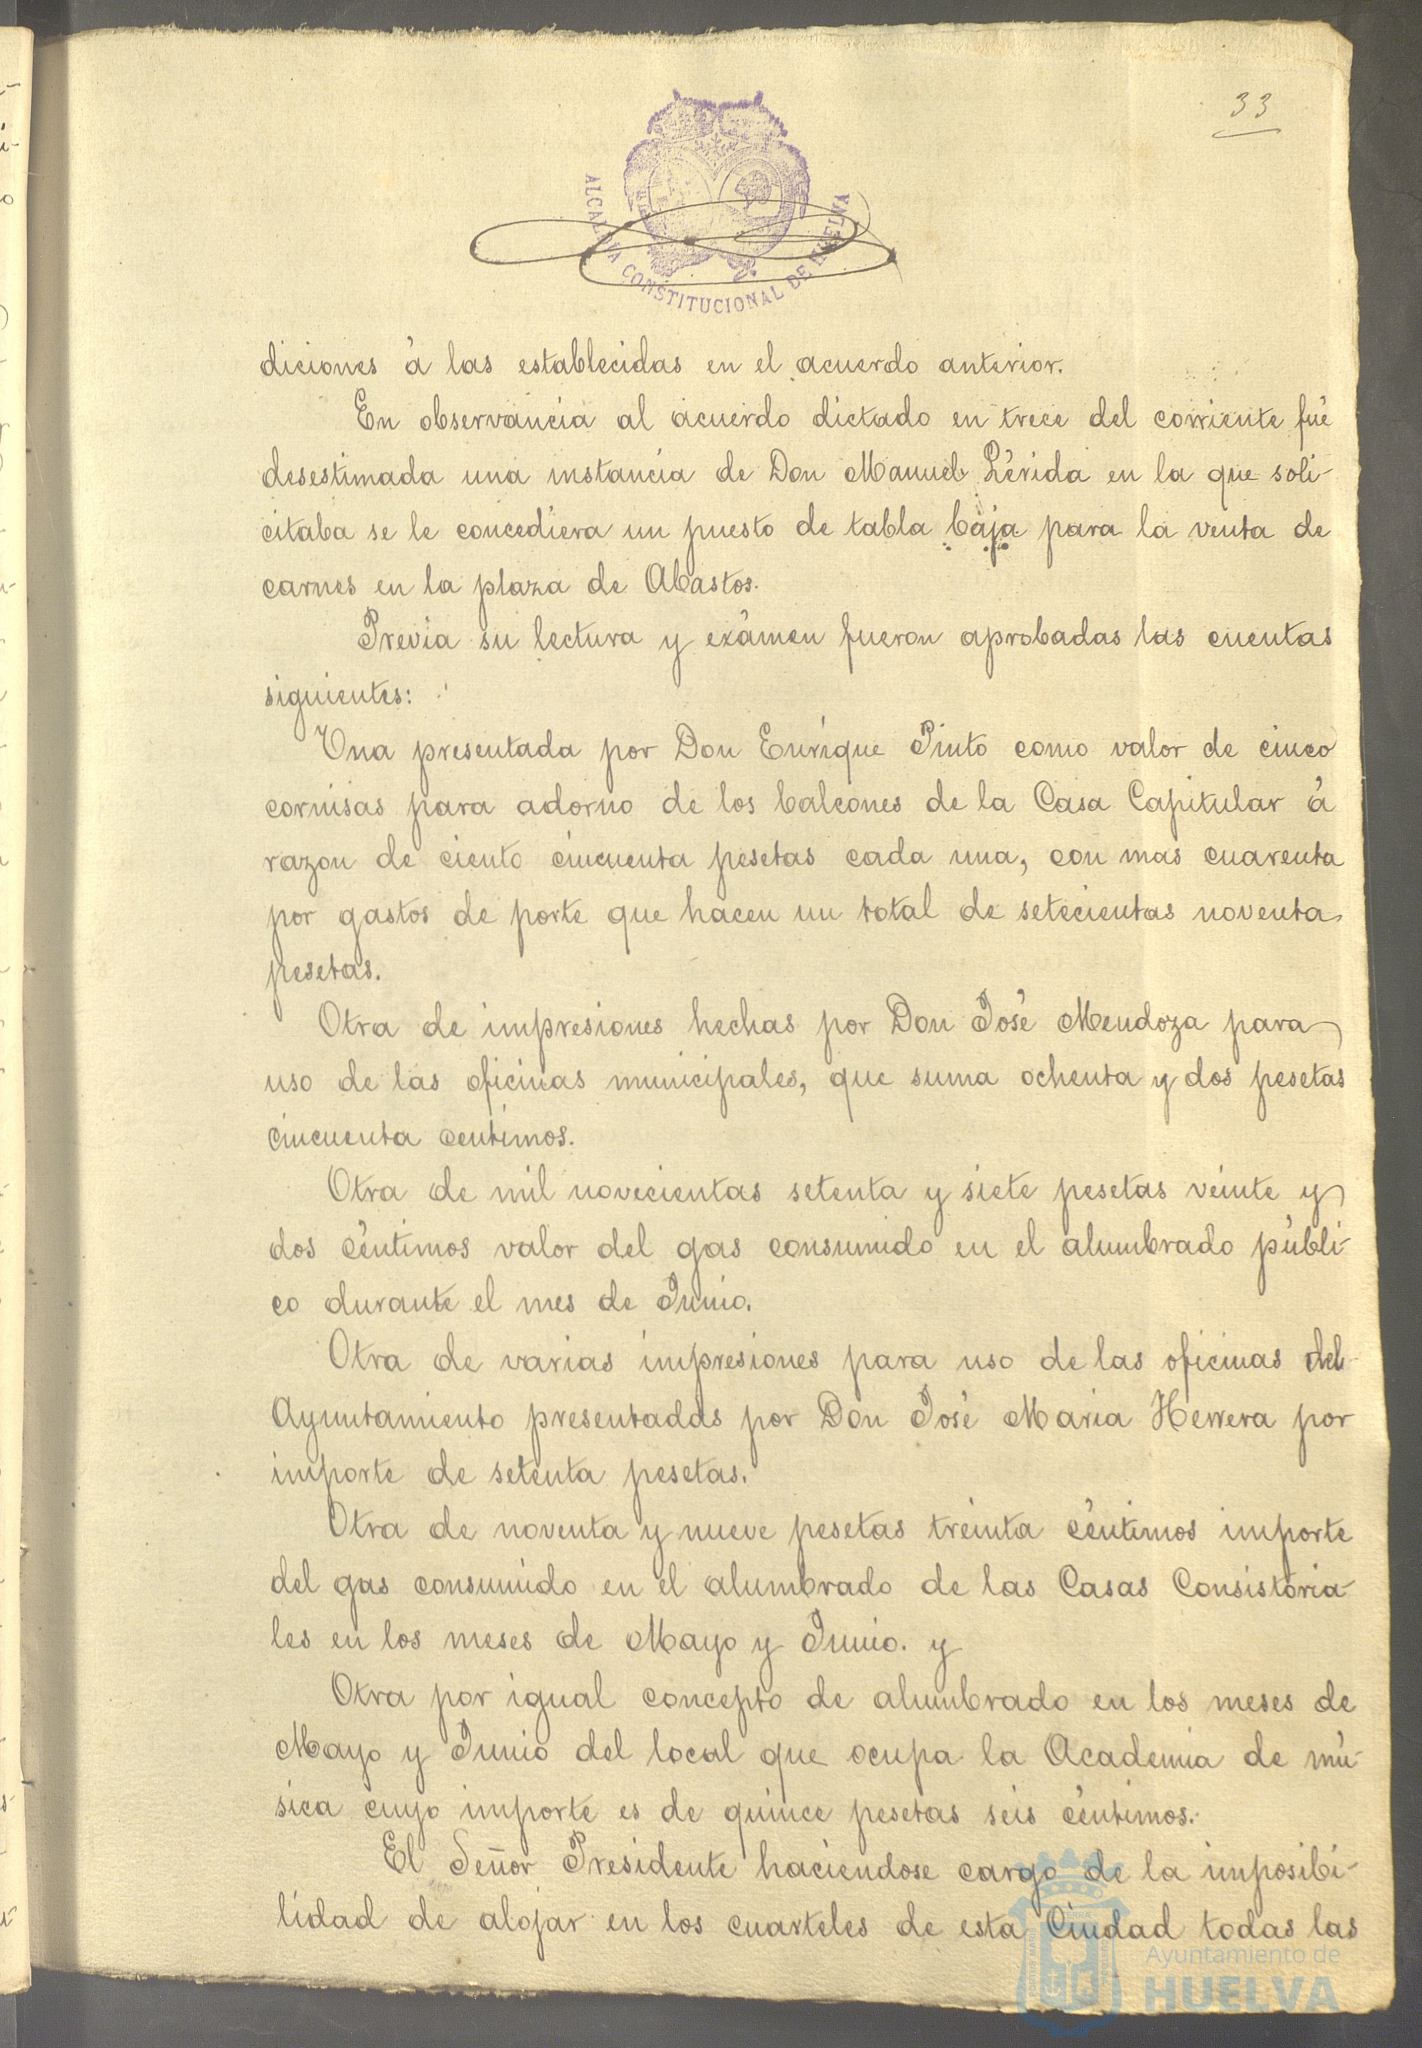 33
ALCALDIA CONSTITUCIONAL DE HUELVA
diciones á las establecidas en el acuerdo anterior.
En observancia al acuerdo dictado en trece del corriente fué
desestimada una instancia de Don Manuel Lérida en la que soli-
citaba se le concediera un puesto de tabla baja para la venta de
carnes en la plaza de Abastos.
Previa su lectura y exámen fueron aprobadas las cuentas
siguientes:
Una presentada por Don Enrique Pinto como valor de cinco
cornisas para adorno de los balcones de la Casa Capitular á
razon de ciento cincuenta pesetas cada una, con mas cuarenta
por gastos de porte que hacen un total de setecientas noventa
pesetas.
Otra de impresiones hechas por Don José Mendoza para
uso de las oficinas municipales, que suma ochenta y dos pesetas
cincuenta centimos.
Otra de mil novecientas setenta y siete pesetas veinte y
dos céntimos valor del gas consumido en el alumbrado públi-
co durante el mes de Junio.
Otra de varias impresiones para uso de las oficinas del
Ayuntamiento presentadas por Don José Maria Herrera por
importe de setenta pesetas.
Otra de noventa y nueve pesetas treinta céntimos importe
del gas consumido en el alumbrado de las Casas Consistoria-
les en los meses de Mayo y Junio. y
Otra por igual concepto de alumbrado en los meses de
Mayo y Junio del local que ocupa la Academia de mú-
sica cuyo importe es de quince pesetas seis céntimos.
El Señor Presidente haciendose cargo de la imposibi-
lidad de alojar en los cuarteles de esta Ciudad todas las
Ayuntamiento de
HUELVA